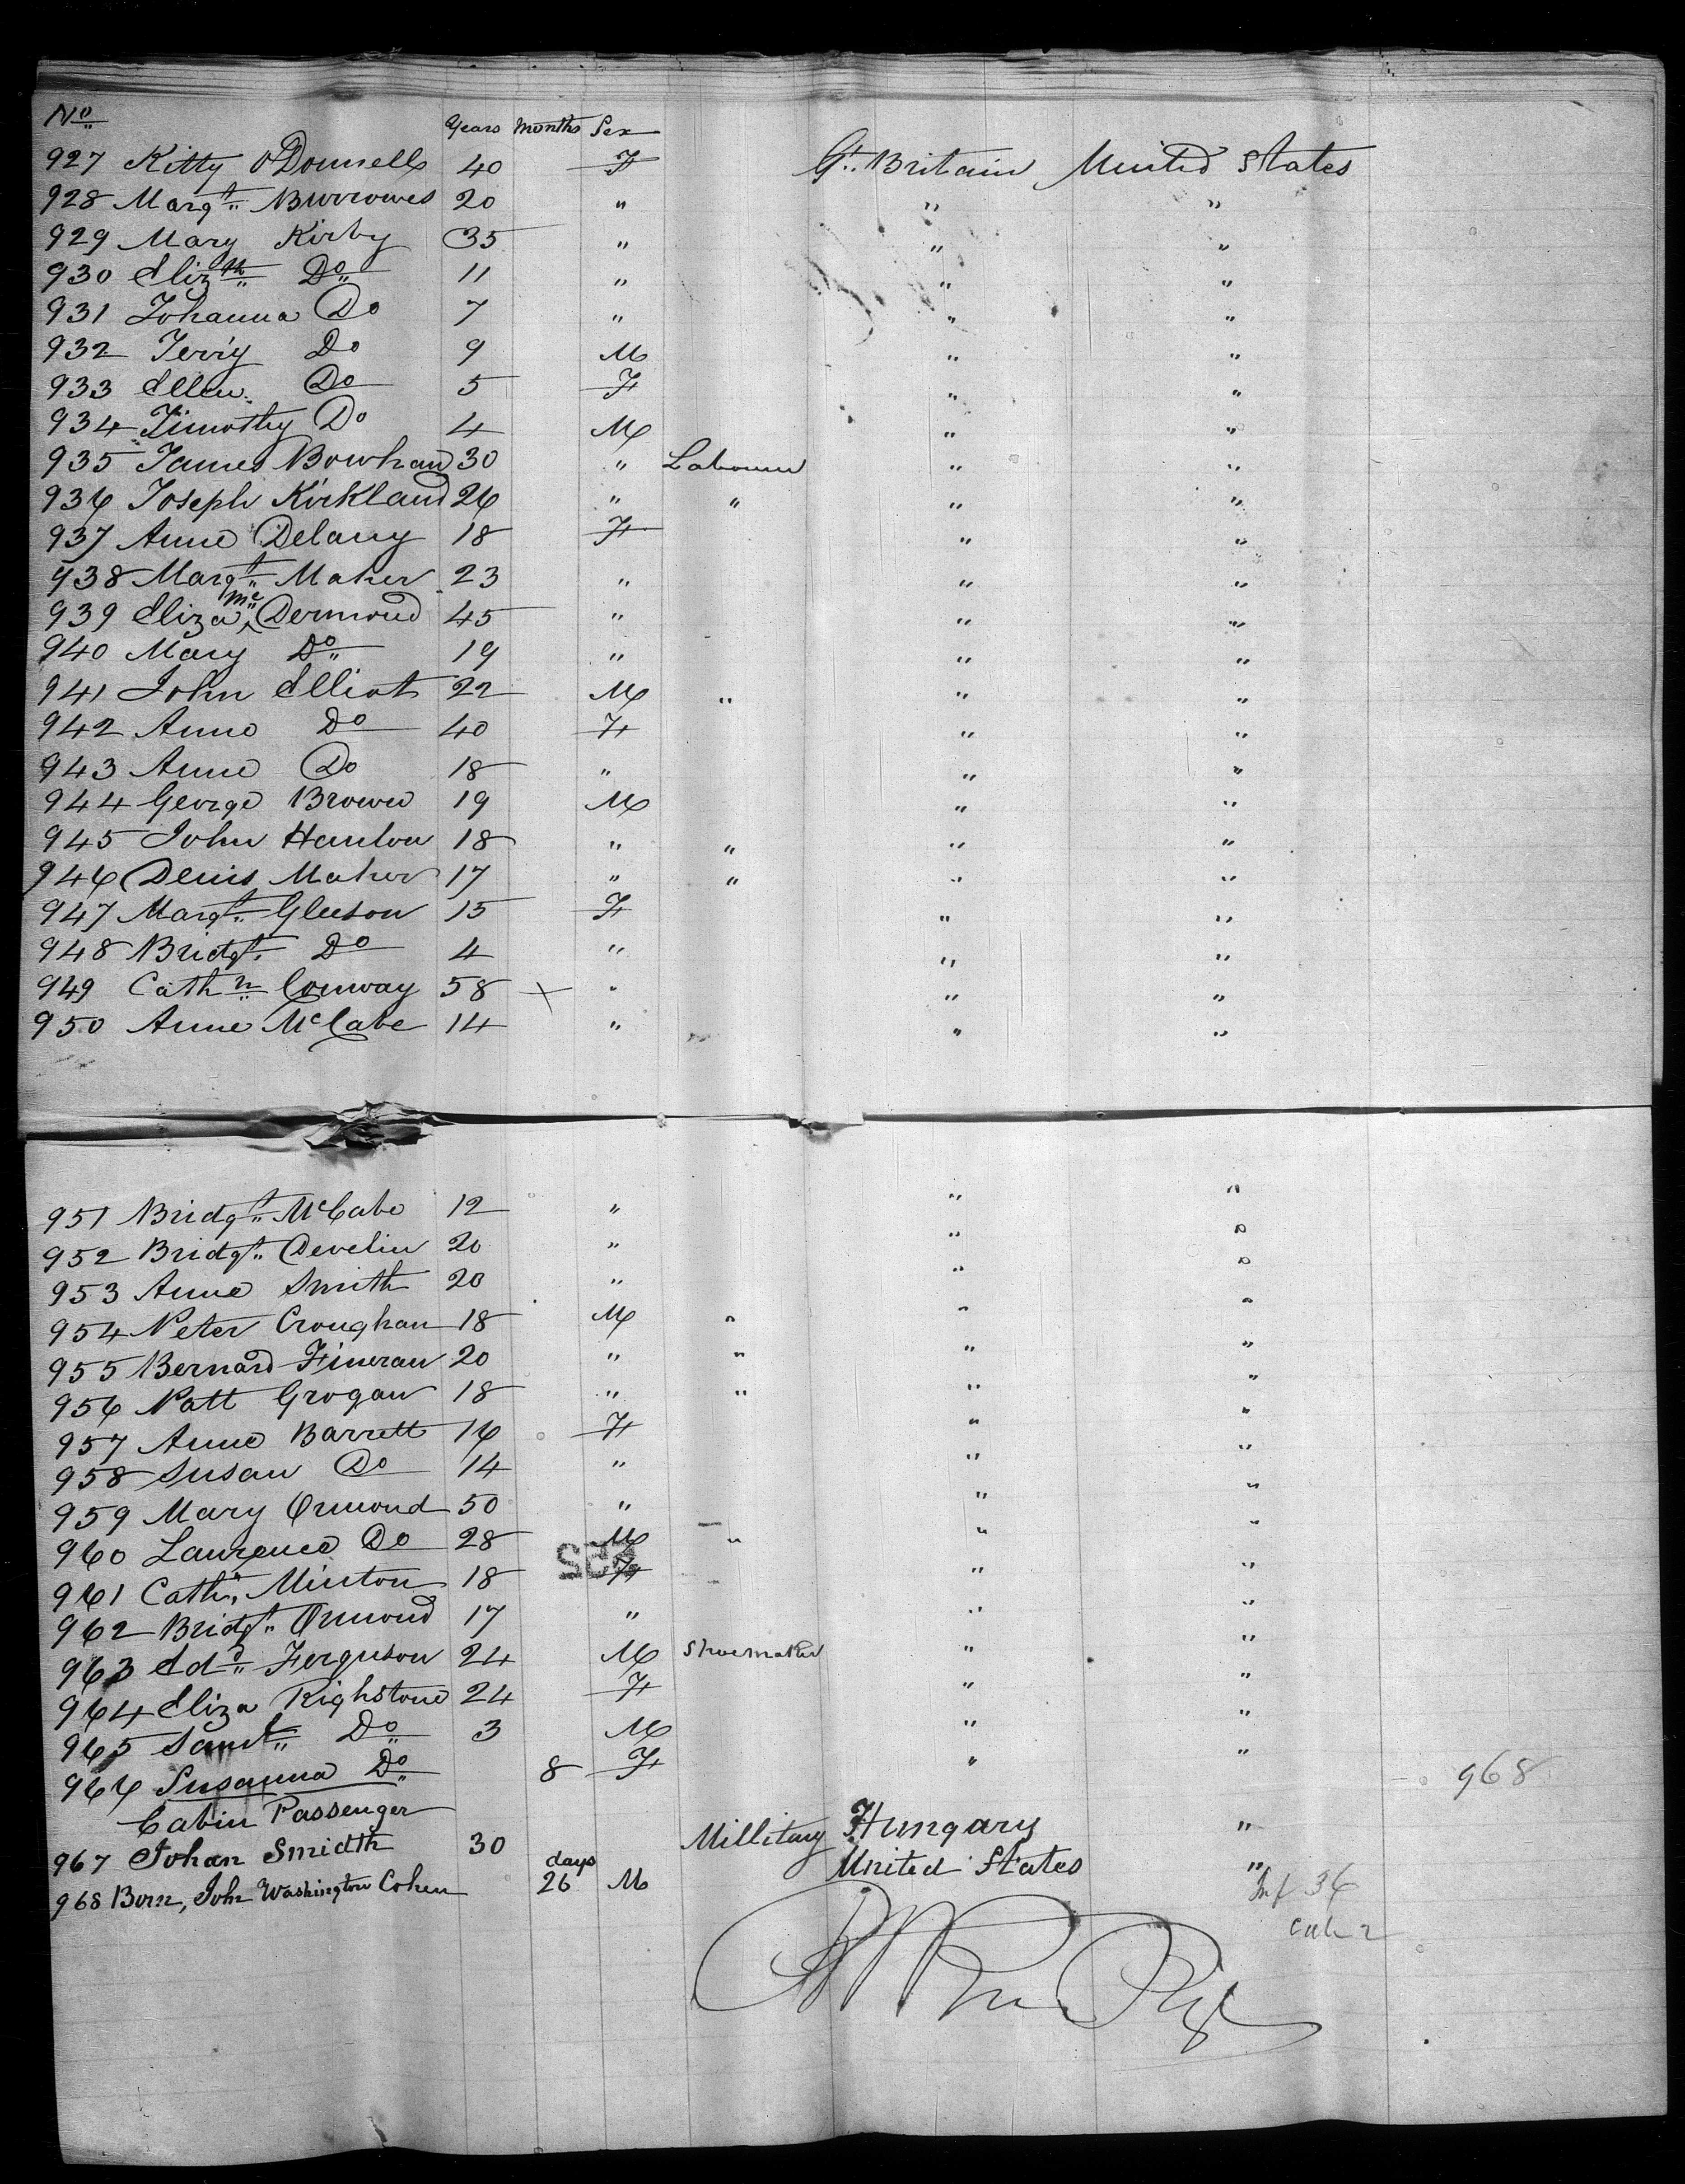 No
Years Months Sex
927 Kitty O'Donnell 40 F Gt. Britain United States
928 Margt. Burrowes 20 " " "
929 Mary Kirby 35 " " "
930 Elizth Do 11 " " "
931 Johanna Do 7 " " "
932 Jerry Do 9 M " "
933 Ellen Do 5 F " "
934 Timothy Do 4 M " "
935 James Bowhan 30 " Labourer " "
936 Joseph Kirkland 26 " " " "
937 Anne Delany 18 F " "
938 Margt. Maher 23 " " "
939 Eliza Mc Dermond 45 " " "
940 Mary Do 19 " " "
941 John Elliot 22 M " " "
942 Anne Do 40 F " "
943 Anne Do 18 " " "
944 George Brown 19 M " "
945 John Hanlon 18 " " " "
946 Denis Maher 17 " " " "
947 Margt. Gleeson 15 F " "
948 Bridgt. Do 4 " " "
949 Cathn Conway 58 + " " "
950 Anne McCabe 14 " " "
951 Bridgt. McCabe 12 " " "
952 Bridgt. Develin 20 " " "
953 Anne Smith 20 " " "
954 Peter Croughan 18 M " " "
955 Bernard Fineran 20 " " " "
956 Patt Grogan 18 " " " "
957 Anne Barrett 16 F " "
958 Susan Do 14 " " "
959 Mary Ormond 50 " " "
960 Laurence Do 28 M " " "
961 Cathn. Minton 18 F " "
962 Bridgt. Ormond 17 " " "
963 Edd Ferguson 24 M Shoemaker " "
964 Eliza Righstone 24 F " "
965 Saml. Do 3 M " "
966 Susanna Do 8 F " " 968
Cabin Passenger
967 Johan Smidth 30 Millitary Hungary "
968 Born, John Washington Cohen days 26 M United States "
Inf 36